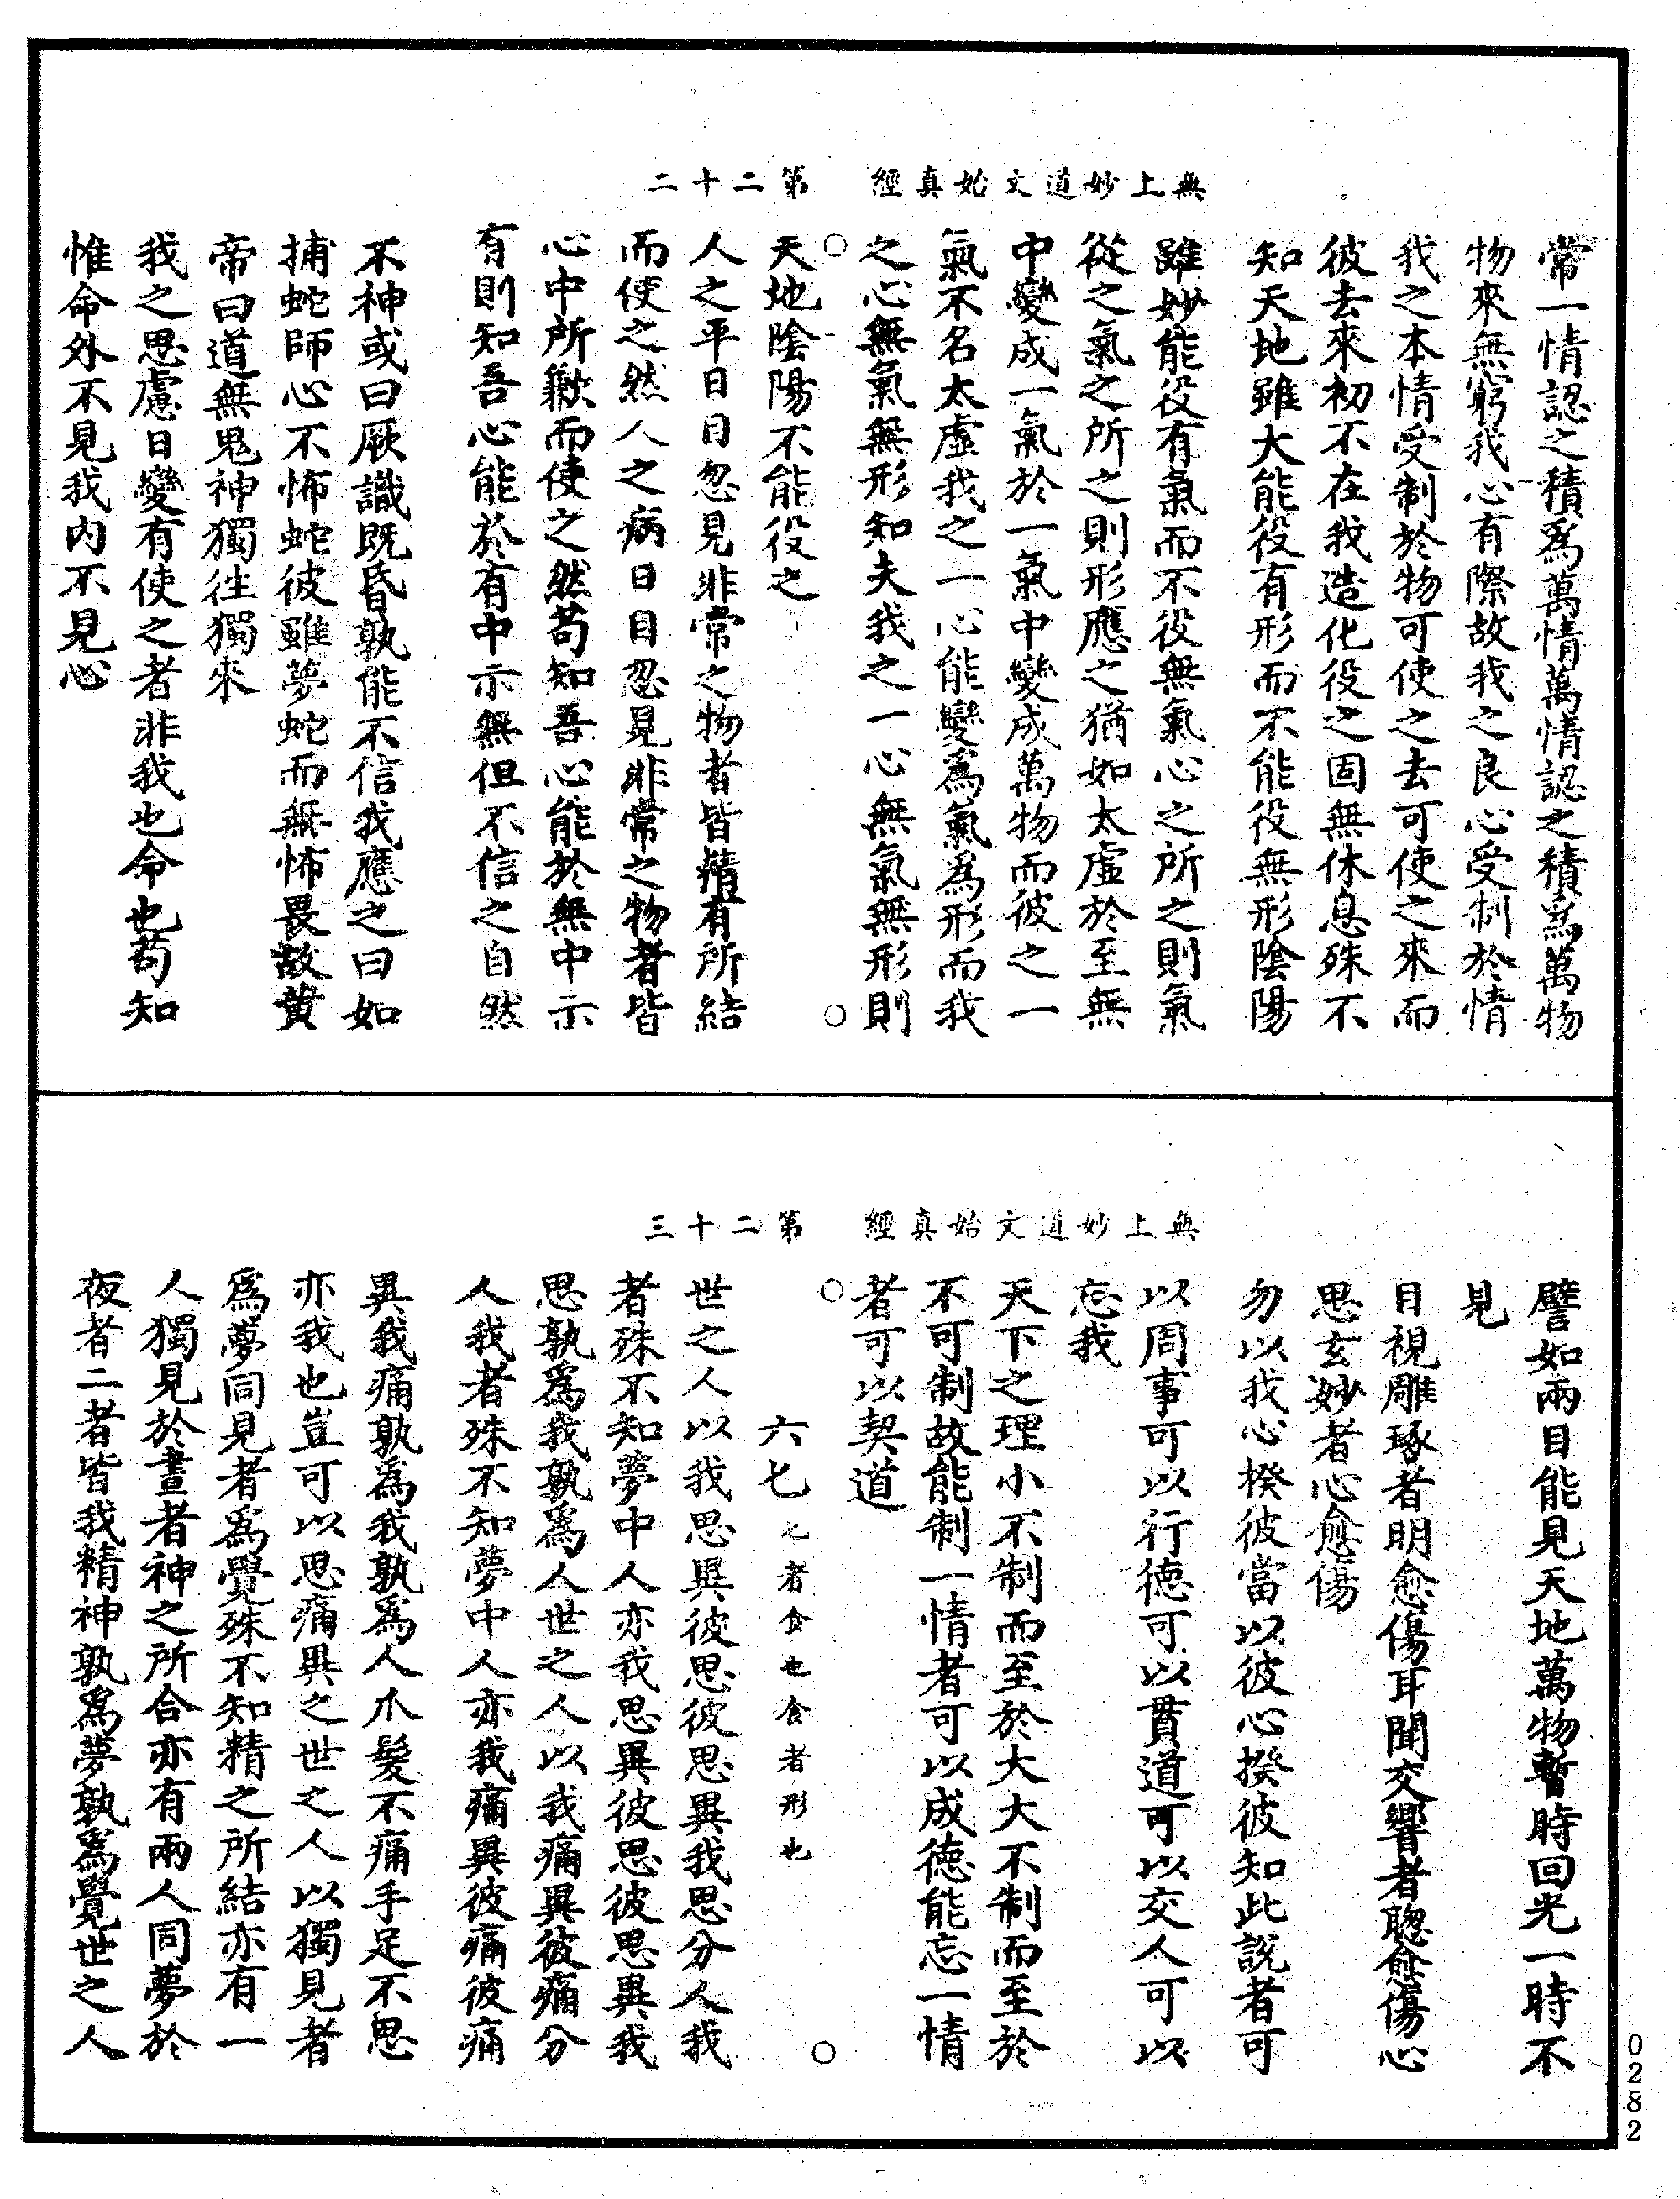 無上妙道文始真經　第二十二
常一情認之積爲萬情萬情認之積爲萬物
物來無窮我心有際故我之良心受制於情
我之本情受制於物可使之去可使之來而
彼去來初不在我造化役之固無休息殊不
知天地雖大能役有形而不能役無形陰陽
雖妙能役有氣而不役無氣心之所之則氣
從之氣之所之則形應之猶如太虛於至無
中變成一氣於一氣中變成萬物而彼之一
氣不名太虛我之一心能變爲氣爲形而我
之心無氣無形知夫我之一心無氣無形則
天地陰陽不能役之
人之平日目忽見非常之物者皆精有所結
而使之然人之病日目忽見非常之物者皆
心中所歉而使之然苟知吾心能於無中示
有則知吾心能於有中示無但不信之自然
不神或曰厥識既昏孰能不信我應之曰如
捕蛇師心不怖蛇彼雖夢蛇而無怖畏故黃
帝曰道無鬼神獨往獨來
我之思慮日變有使之者非我也命也苟知
惟命外不見我內不見心
無上妙道文始真經　第二十三
譬如兩目能見天地萬物暫時回光一時不
見
目視雕琢者明愈傷耳聞交響者聰愈傷心
思玄妙者心愈傷
勿以我心揆彼當以彼心揆彼知此說者可
以周事可以行德可以貫道可以交人可以
忘我
天下之理小不制而至於大大不制而至於
不可制故能制一情者可以成德能忘一情
者可以契道
六七 七者食也食者形也
世之人以我思異彼思彼思異我思分人我
者殊不知夢中人亦我思異彼思彼思異我
思孰爲我孰爲人世之人以我痛異彼痛分
人我者殊不知夢中人亦我痛異彼痛彼痛
異我痛孰爲我孰爲人爪髮不痛手足不思
亦我也豈可以思痛異之世之人以獨見者
爲夢同見者爲覺殊不知精之所結亦有一
人獨見於晝者神之所合亦有兩人同夢於
夜者二者皆我精神孰爲夢孰爲覺世之人
0282